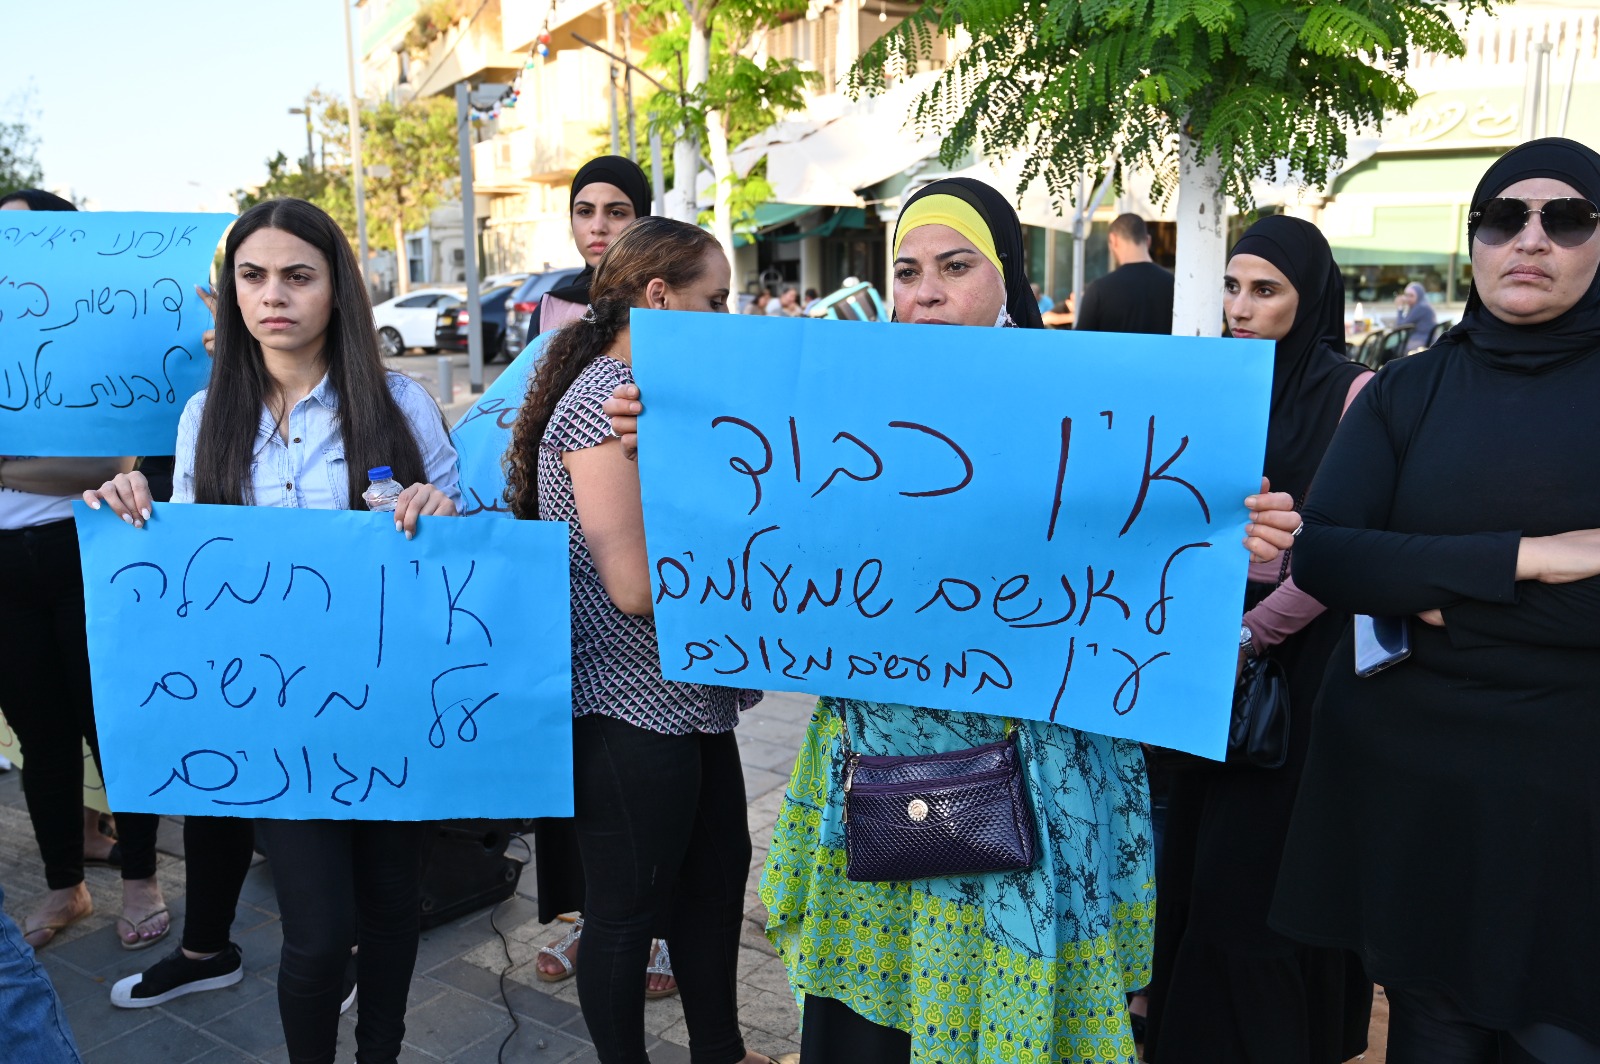 אנחנו האמהות
דורשות
לבנות שלנו
אין חמלה
על מעשים
מגונים
אין כבוד
לאנשים שמעלמים
עין במעשים מגונים